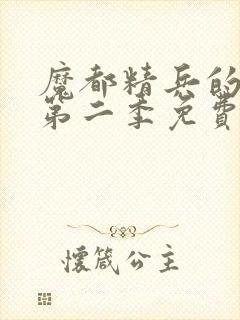 魔都精兵的
第二季免費
懷箴公主